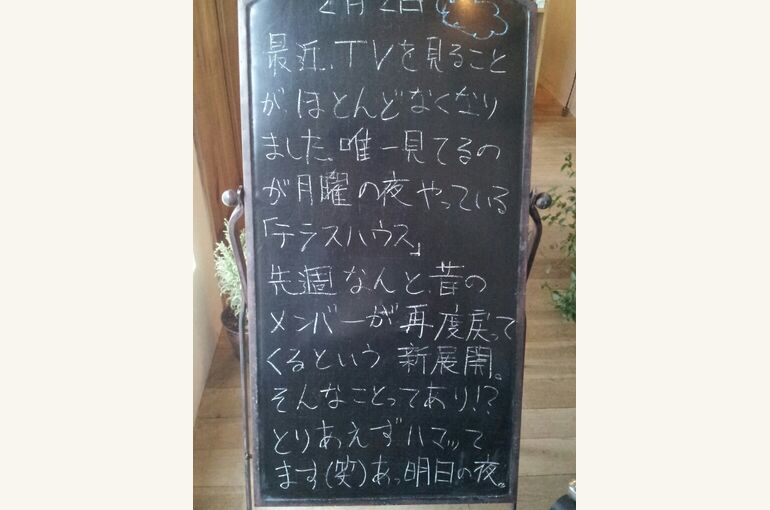 2月2日
最近、TVを見ること
がほとんどなくなり
ました、唯一見てるの
が月曜の夜やっている
「テラスハウス」
先週なんと、昔の
メンバーが再度戻って
くるという新展開。
そんなことってあり!?
とりあえずハマッて
ます(笑)あっ明日の夜。